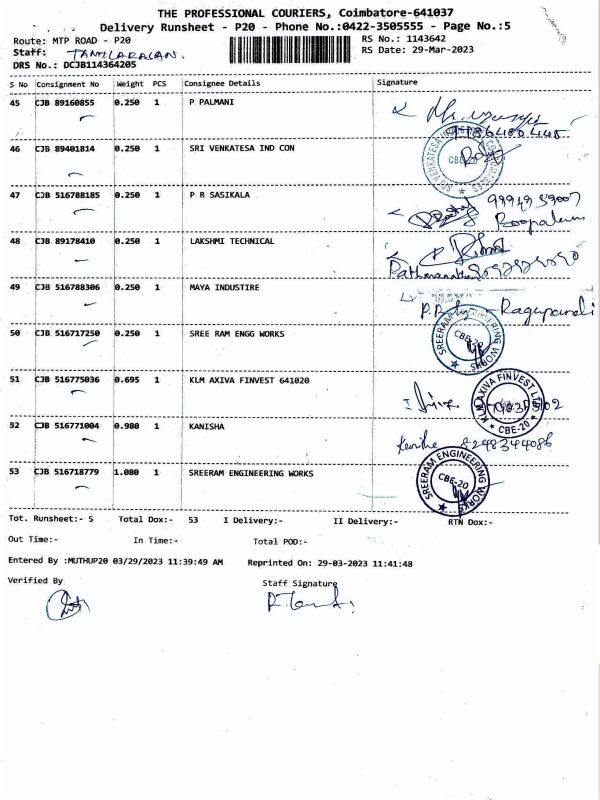 THE PROFESSIONAL COURIERS, Coimbatore-641037
Delivery Runsheet - P20 - Phone No.:0422-3505555 - Page No.:5
Route: MTP ROAD - P20 RS No.: 1143642
Staff: TAMILARASAN. RS Date: 29-Mar-2023
DRS No.: DCJB114364205
S No Consignment No Weight PCS Consignee Details Signature
45 CJB 89160855 0.250 1 P PALMANI
46 CJB 89401814 0.250 1 SRI VENKATESA IND CON
47 CJB 516788185 0.250 1 P R SASIKALA
Boopalan
48 CJB 89178410 0.250 1 LAKSHMI TECHNICAL
49 CJB 516788306 0.250 1 MAYA INDUSTIRE
50 CJB 516717250 0.250 1 SREE RAM ENGG WORKS
SREERAM ENGINEERING WORKS CBE-20
51 CJB 516775036 0.695 1 KLM AXIVA FINVEST 641020
KLM AXIVA FINVEST LTD CBE-20
52 CJB 516771004 0.980 1 KANISHA
8248344086
53 CJB 516718779 1.080 1 SREERAM ENGINEERING WORKS
SREERAM ENGINEERING WORKS CBE-20
Tot. Runsheet:- 5 Total Dox:- 53 I Delivery:- II Delivery:- RTN Dox:-
Out Time:- In Time:- Total POD:-
Entered By :MUTHUP20 03/29/2023 11:39:49 AM Reprinted On: 29-03-2023 11:41:48
Verified By Staff Signature